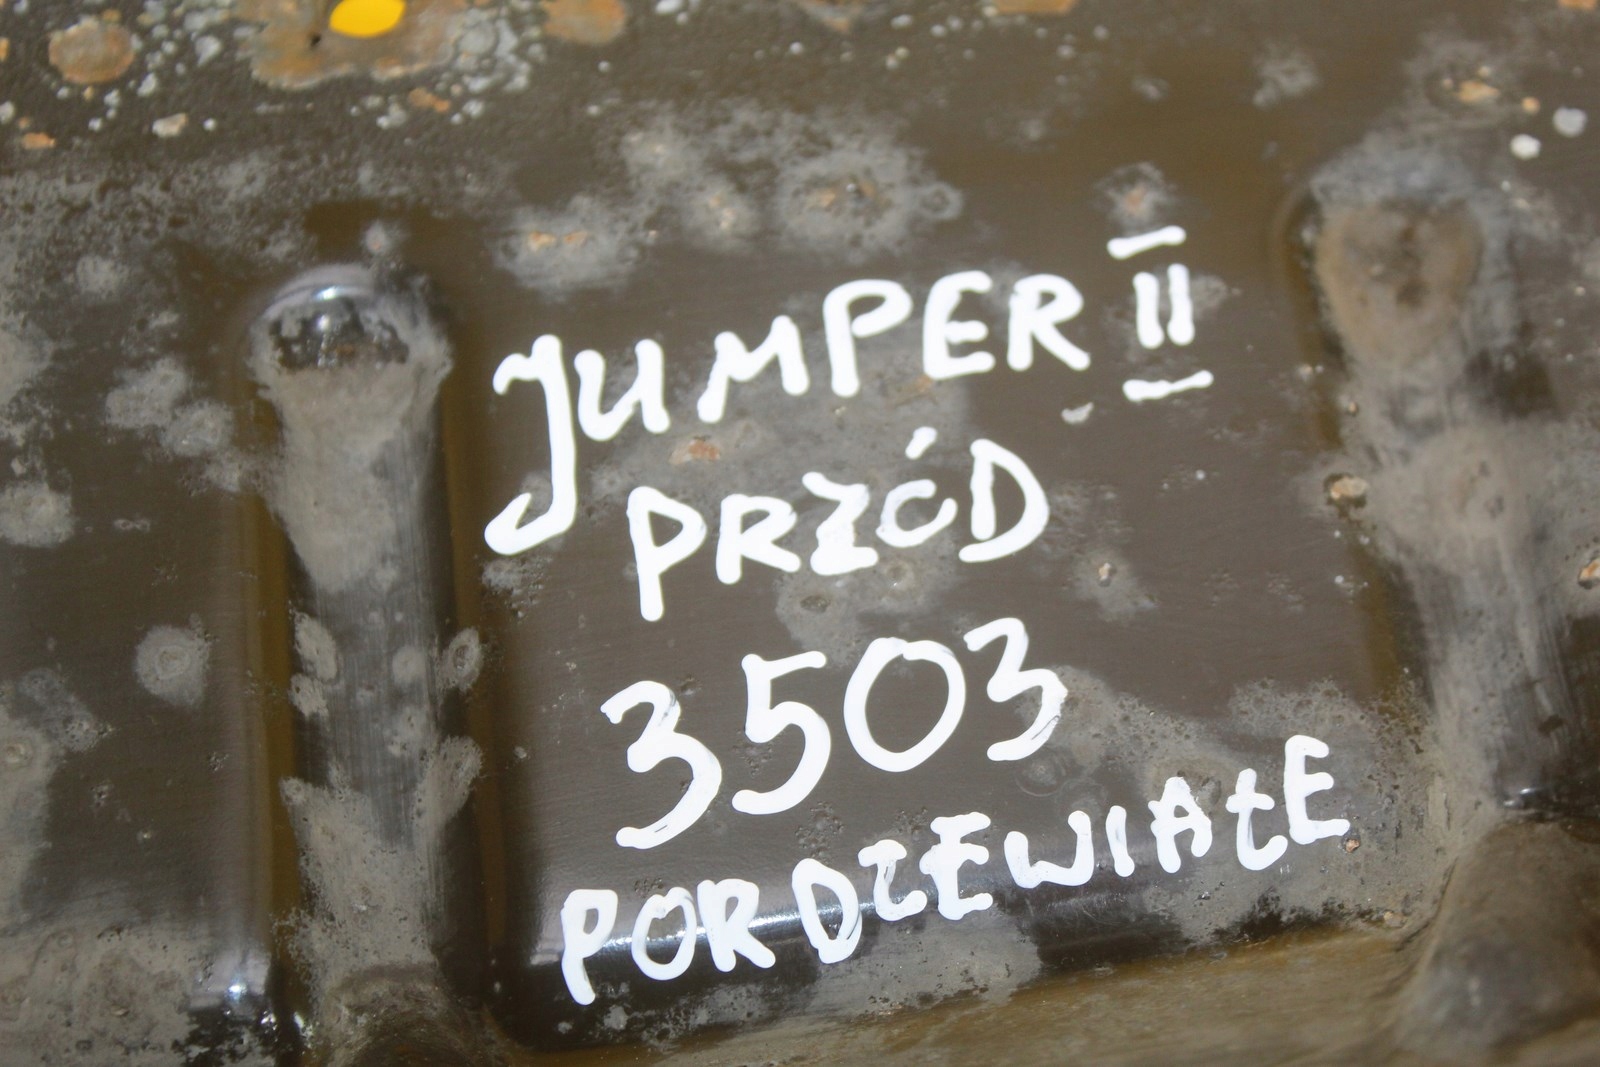 JUMPER II
PRZÓD
3503
PORDZEWIAŁE